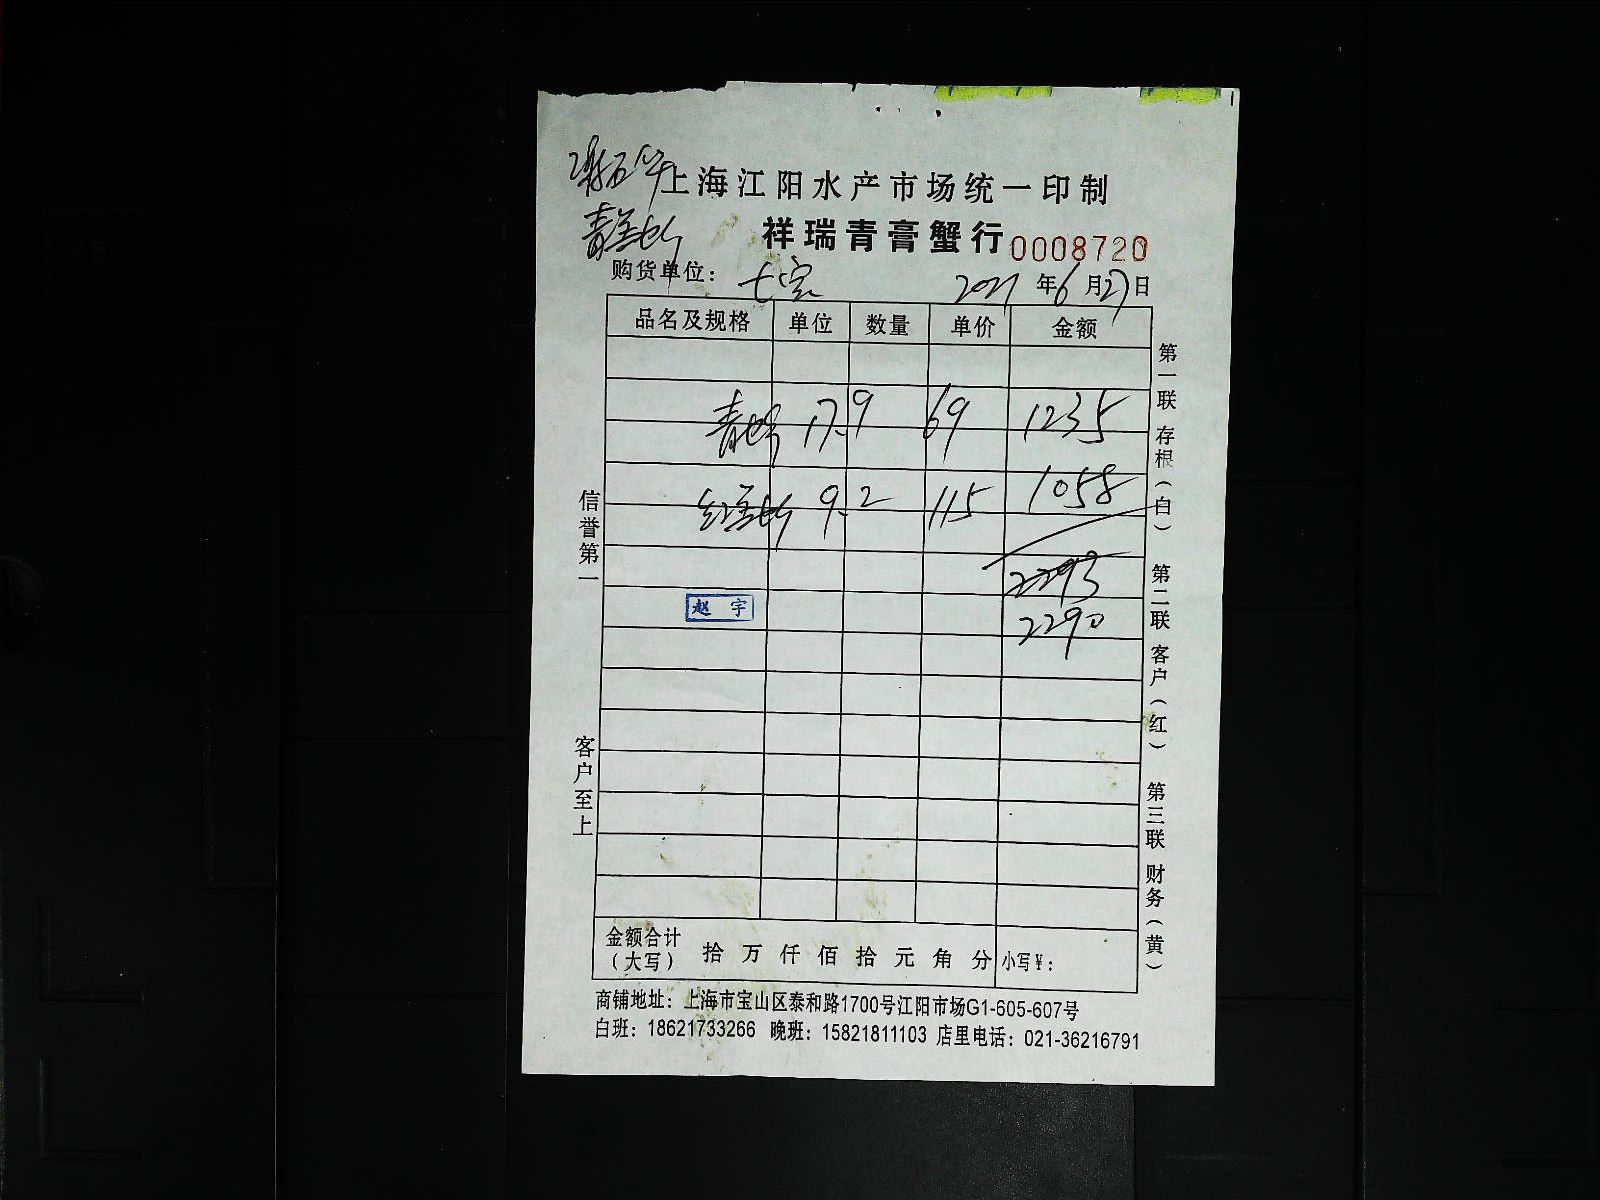 上海江阳水产市场统一印制
祥瑞青膏蟹行 0008720
购货单位： 七宝 2021年6月27日
品名及规格 单位 数量 单价 金额
青 17.9 69 1235
红 9.2 115 1058
2293
2290
赵 宇
信誉第一
客户至上
第一联 存根（白） 第二联 客户（红） 第三联 财务（黄）
金额合计（大写） 拾 万 仟 佰 拾 元 角 分 小写¥：
商铺地址：上海市宝山区泰和路1700号江阳市场G1-605-607号
白班：18621733266 晚班：15821811103 店里电话：021-36216791